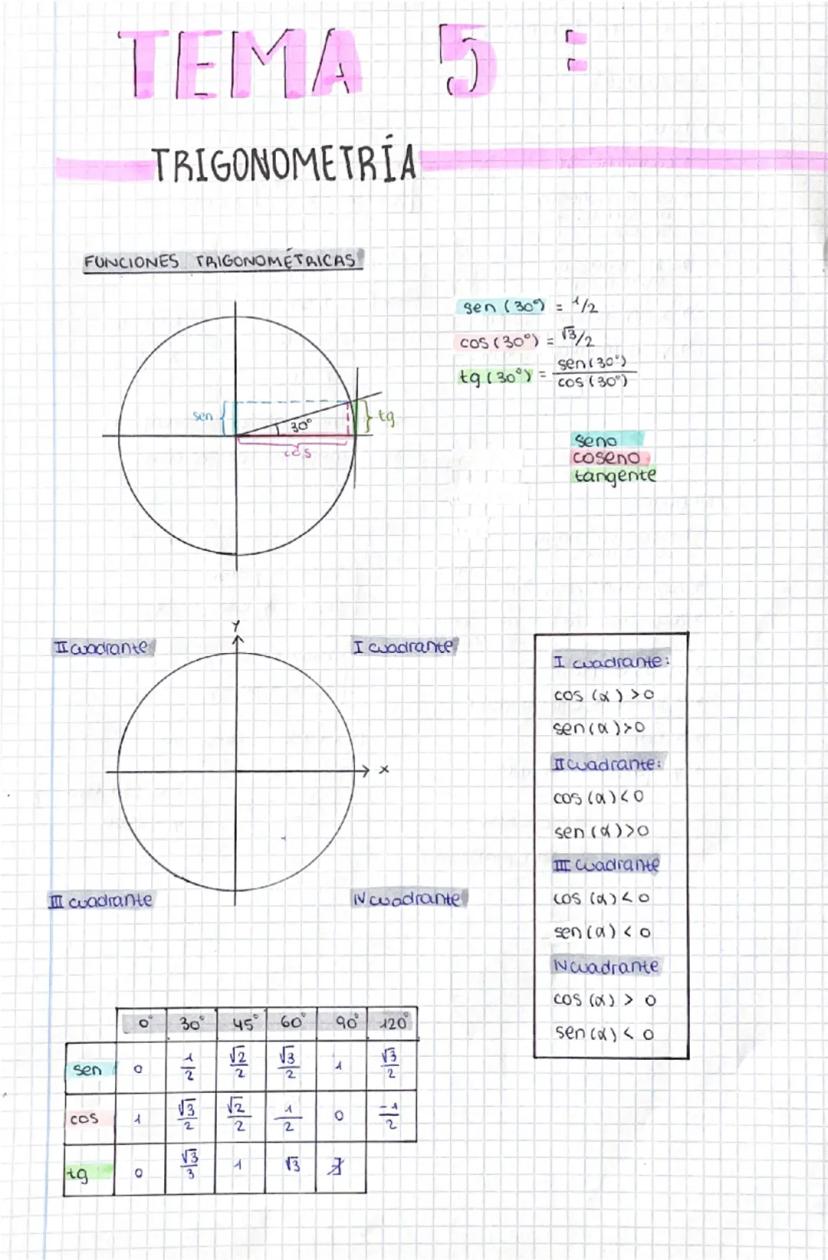 TEMA 5:
TRIGONOMETRÍA
FUNCIONES TRIGONOMÉTRICAS
sen (30º) = 1/2
cos (30º) = √3/2
tg (30º) = sen (30º) / cos (30º)
sen
30º
tg
cos
seno
coseno
tangente
Y
II cuadrante
I cuadrante
X
III cuadrante
IV cuadrante
I cuadrante:
cos (α) > 0
sen (α) > 0
II cuadrante:
cos (α) < 0
sen (α) > 0
III cuadrante
cos (α) < 0
sen (α) < 0
IV cuadrante
cos (α) > 0
sen (α) < 0
0º 30º 45º 60º 90º 120º
sen 0 1/2 √2/2 √3/2 1 √3/2
cos 1 √3/2 √2/2 1/2 0 -1/2
tg 0 √3/3 1 √3 ∄